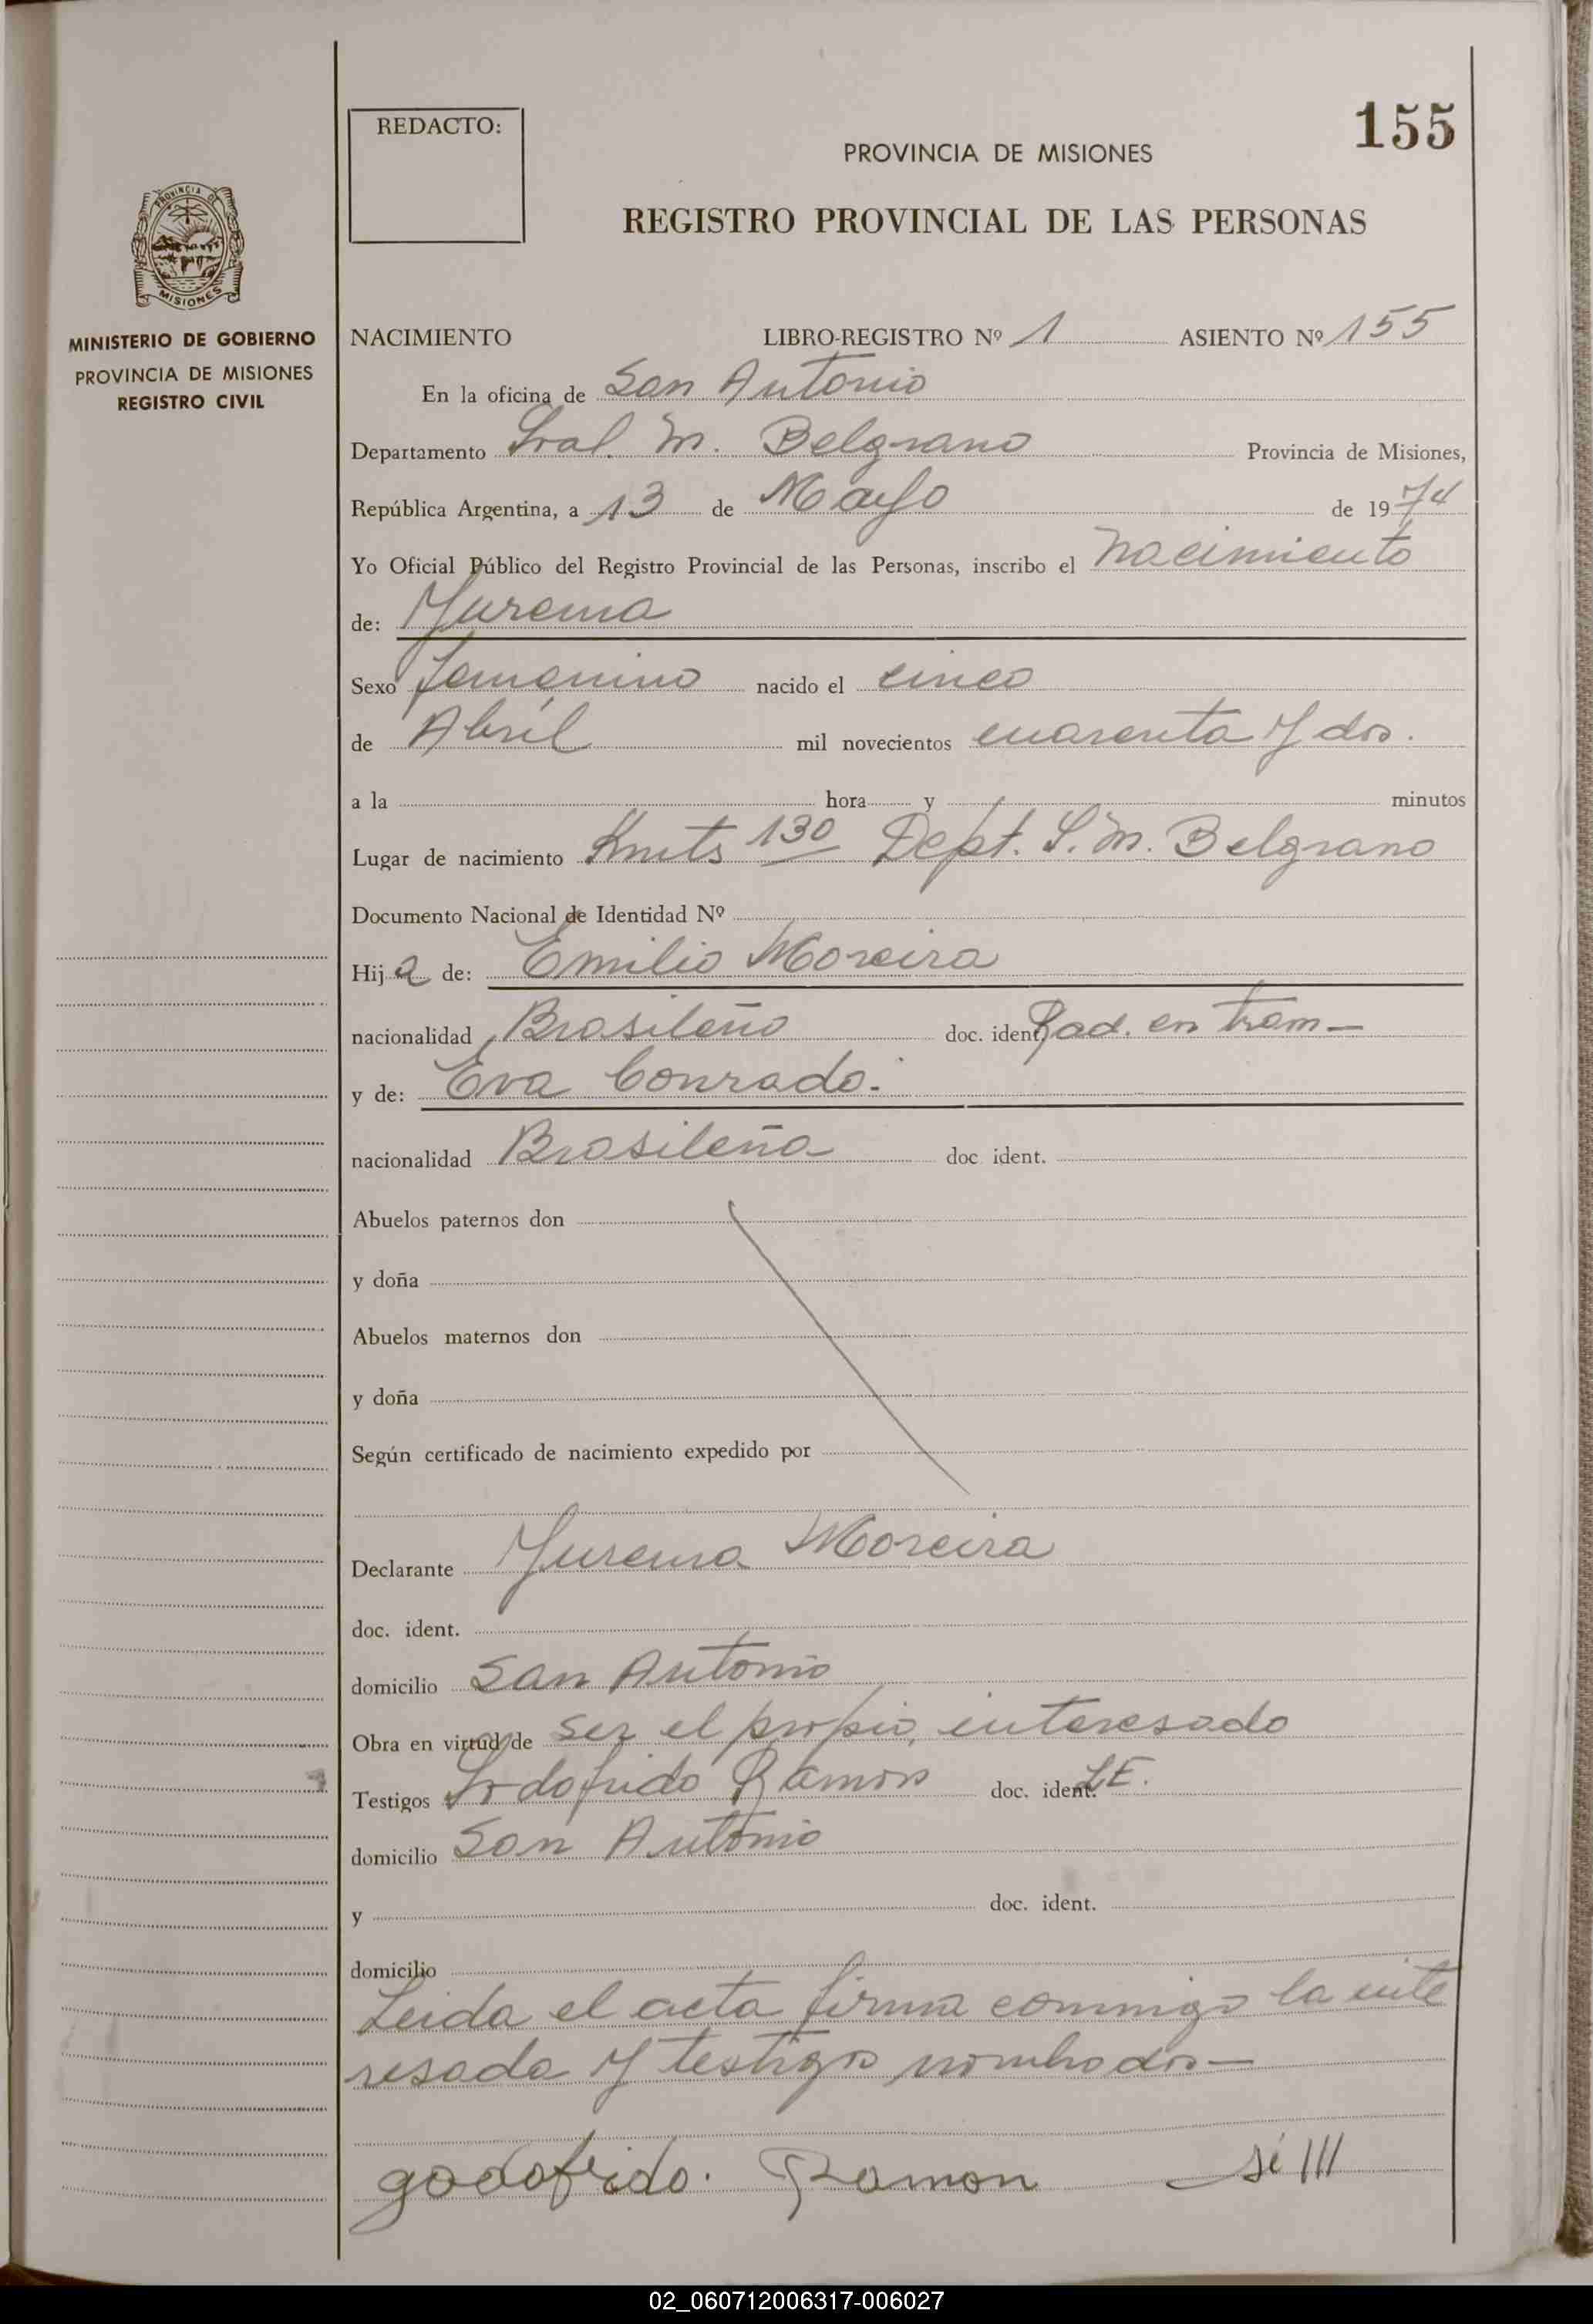 155
REDACTO:
PROVINCIA DE MISIONES
REGISTRO PROVINCIAL DE LAS PERSONAS
PROVINCIA DE
MISIONES
MINISTERIO DE GOBIERNO
PROVINCIA DE MISIONES
REGISTRO CIVIL
NACIMIENTO LIBRO-REGISTRO Nº 1 ASIENTO Nº 155
En la oficina de San Antonio
Departamento Gral. M. Belgrano Provincia de Misiones,
República Argentina, a 13 de Mayo de 1974
Yo Oficial Público del Registro Provincial de las Personas, inscribo el nacimiento
de: Yurema
Sexo femenino nacido el cinco
de Abril mil novecientos cuarenta y dos.
a la hora y minutos
Lugar de nacimiento 130 Dept. G. M. Belgrano
Documento Nacional de Identidad Nº
Hija de: Emilio Moreira
nacionalidad Brasileño doc. ident. Rad. en tram-
y de: Eva Conrado.
nacionalidad Brasileña doc ident.
Abuelos paternos don
y doña
Abuelos maternos don
y doña
Según certificado de nacimiento expedido por
Declarante Yurema Moreira
doc. ident.
domicilio San Antonio
Obra en virtud de ser el propio interesado
Testigos Ramos doc. ident. L.E.
domicilio San Antonio
y doc. ident.
domicilio
Leida el acta firma conmigo la inte
resada y testigos nombrados-
godofrido. Ramon
02_060712006317-006027